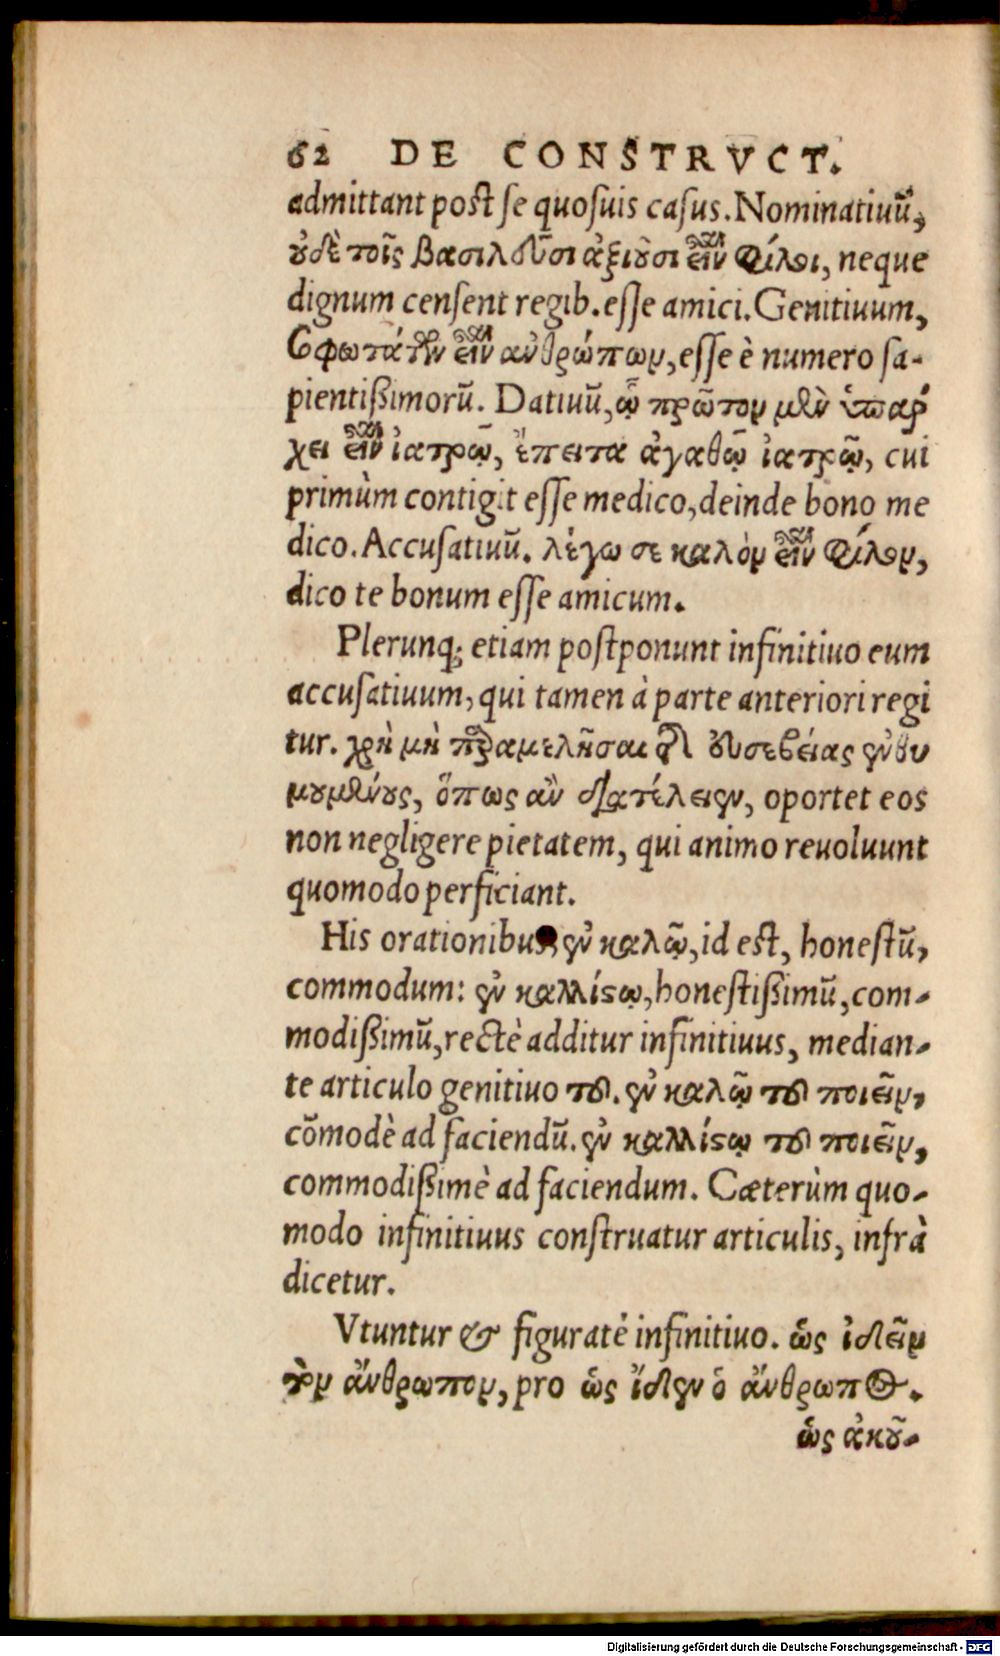 62 DE CONSTRVCT.
admittant post se quosuis casus. Nominatiuũ,
οὐδὲ τοῖς βασιλεῦσι ἀξιοῦσι εἶναι φίλοι, neque
dignum censent regib. esse amici. Genitiuum,
σοφωτάτων εἶναι ἀνθρώπων, esse è numero sa-
pientißimorũ. Datiuũ, ᾧ πρῶτον μὲν ὑπάρ
χει εἶναι ἰατρῷ, ἔπειτα ἀγαθῷ ἰατρῷ, cui
primùm contigit esse medico, deinde bono me
dico. Accusatiuũ. λέγω σε καλὸν εἶναι φίλον,
dico te bonum esse amicum.
Plerunq; etiam postponunt infinitiuo eum
accusatiuum, qui tamen à parte anteriori regi
tur. χρὴ μὴ παραμελῆσαι τῆς εὐσεβείας ἐνθυ
μουμένους, ὅπως ἂν διατέλειεν, oportet eos
non negligere pietatem, qui animo reuoluunt
quomodo perficiant.
His orationibus, ἐν καλῷ, id est, honestũ,
commodum: ἐν καλλίστῳ, honestißimũ, com-
modißimũ, rectè additur infinitiuus, median-
te articulo genitiuo τοῦ. ἐν καλῷ τοῦ ποιεῖν,
cõmodè ad faciendũ. ἐν καλλίστῳ τοῦ ποιεῖν,
commodißimè ad faciendum. Cæterùm quo-
modo infinitiuus construatur articulis, infrà
dicetur.
Vtuntur & figuratè infinitiuo. ὡς ἰδεῖν
τὸν ἄνθρωπον, pro ὡς ἴδεν ὁ ἄνθρωπος.
ὡς ἀκοῦ-
Digitalisierung gefördert durch die Deutsche Forschungsgemeinschaft - DFG